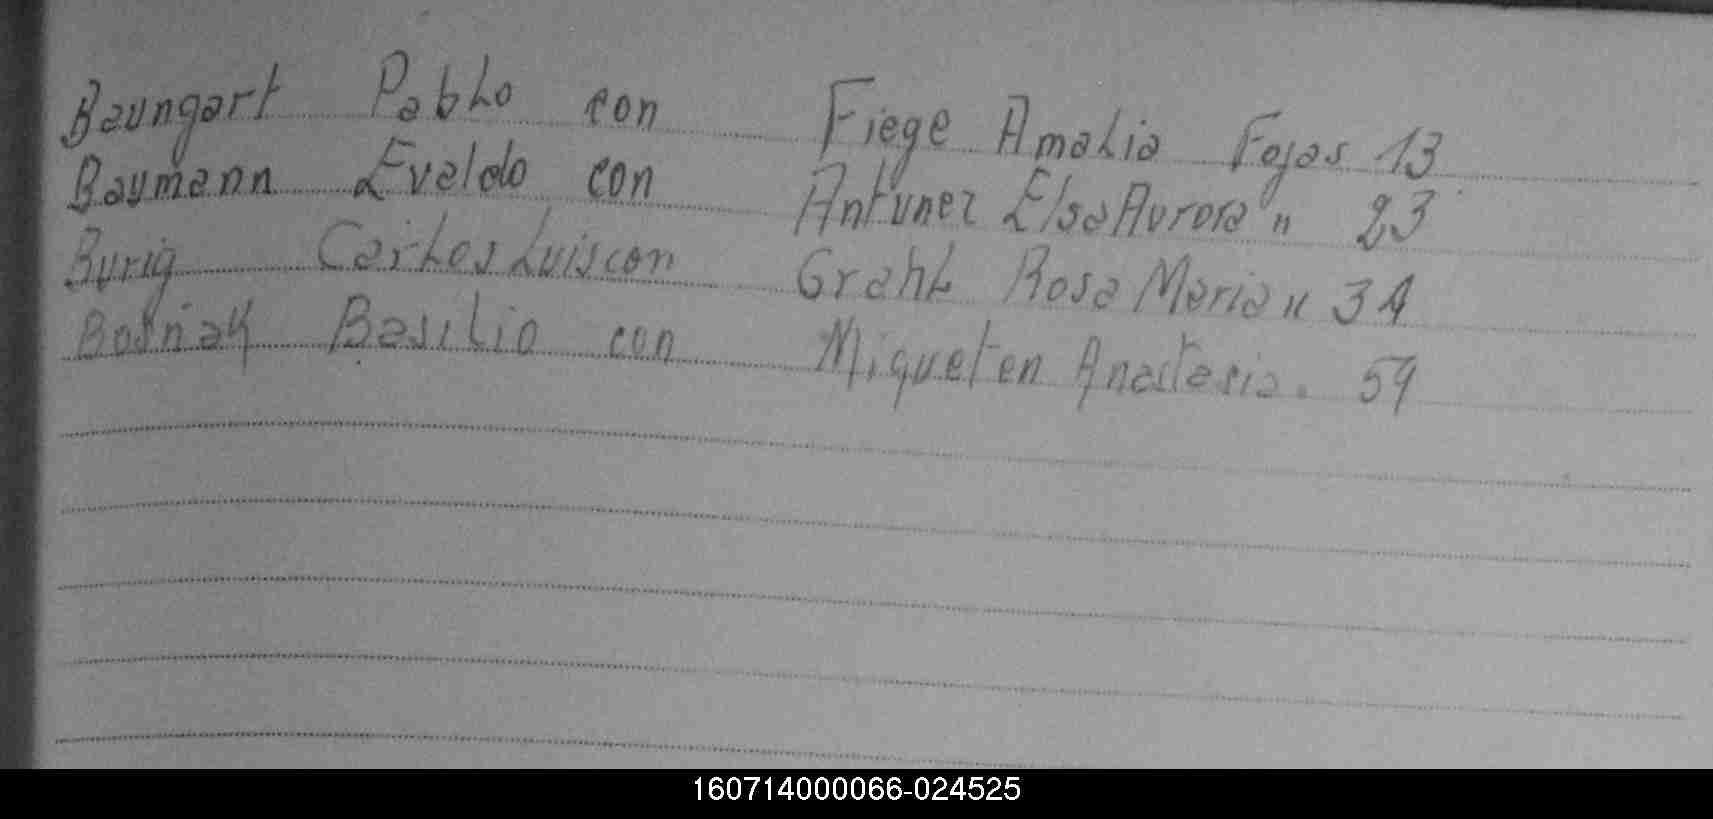 Baungart Pablo con Fiege Amalia Fojas 13
Baumann Evaldo con Antunez Elsa Aurora " 23
Burig Carlos Luis con Grahl Rosa Maria " 34
Bosñak Basilio con Miqueten Anastasia. 59
160714000066-024525